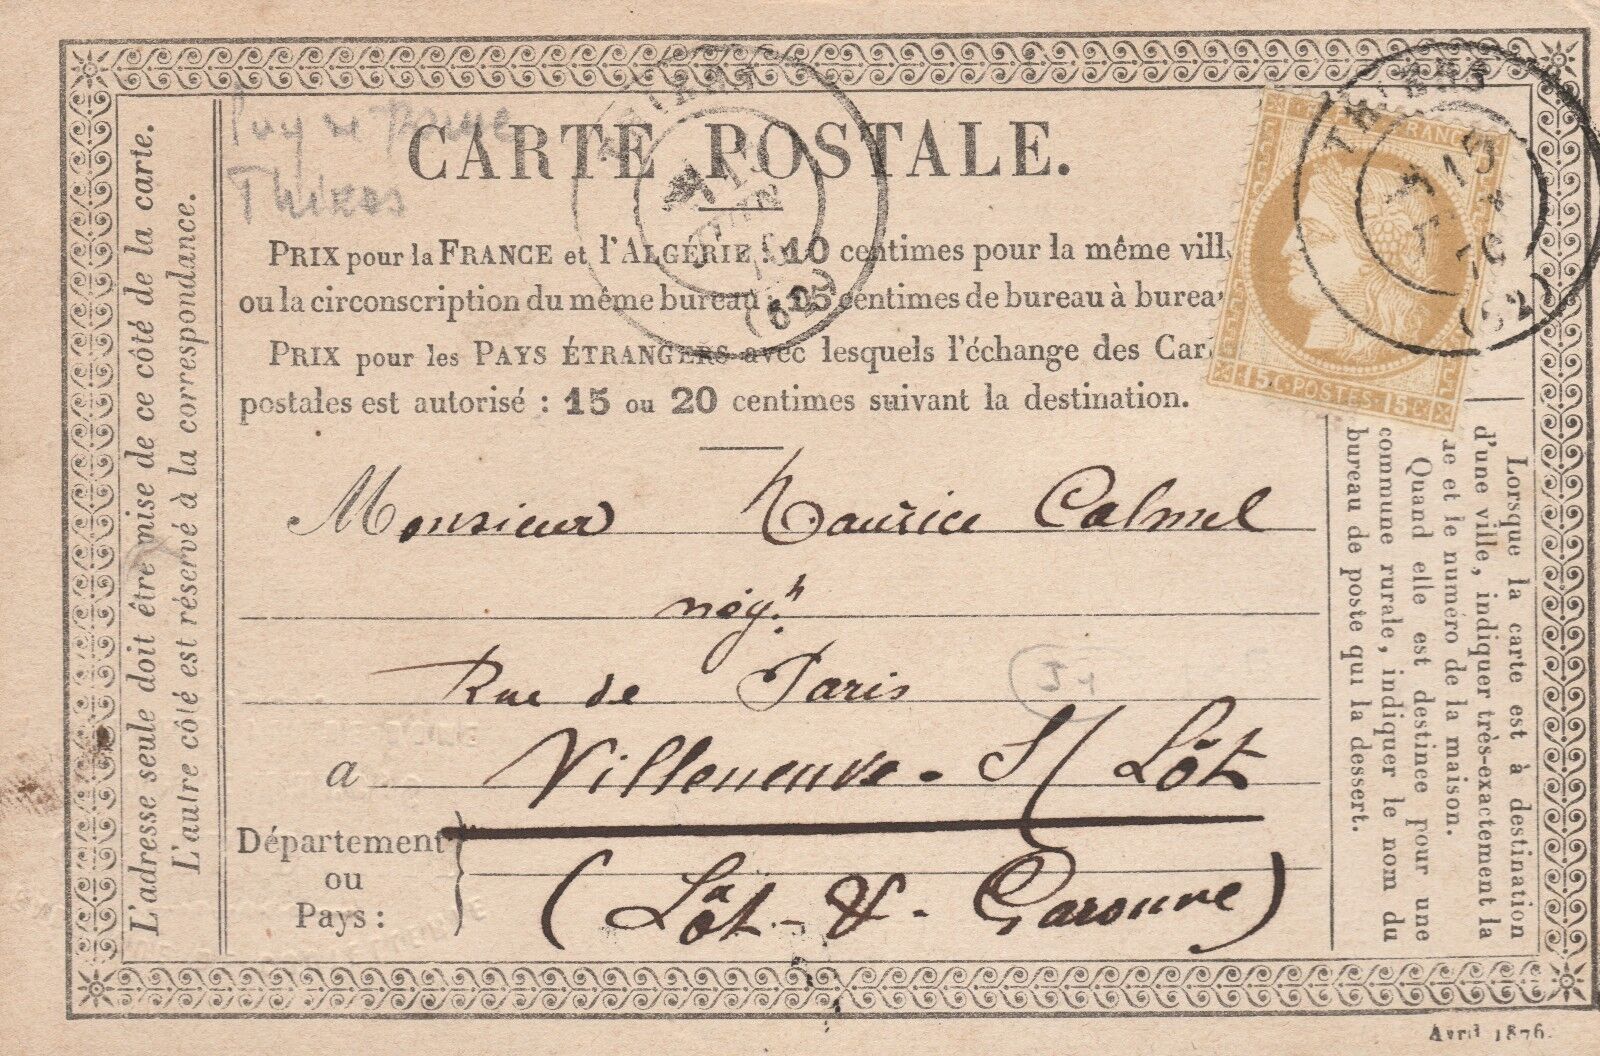 CARTE POSTALE.
Puy de Dôme
Thiers
PRIX pour la FRANCE et l'ALGÉRIE : 10 centimes pour la même vill
ou la circonscription du même bureau ; 15 centimes de bureau à burea
PRIX pour les PAYS ÉTRANGERS avec lesquels l'échange des Car
postales est autorisé : 15 ou 20 centimes suivant la destination.
THIERS
15
JUIN
76
(62)
THIERS
15
76
(62)
15 C. POSTES. 15 C.
Monsieur Maurice Calmel
nég.t
Rue de Paris
a Villeneuve - S/ Lôt
Département
ou
Pays :
(Lôt - & - Garonne)
L'adresse seule doit être mise de ce côté de la carte.
L'autre côté est réservé à la correspondance.
Lorsque la carte est à destination
d'une ville, indiquer très-exactement la
ue et le numéro de la maison.
Quand elle est destinée pour une
commune rurale, indiquer le nom du
bureau de poste qui la dessert.
Avril 1876.